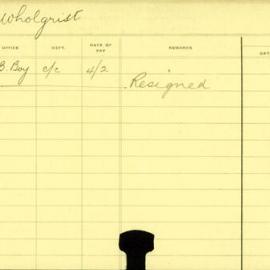 Wholgrist
OFFICE DEPT. DATE OF PAY REMARKS
B. Boy c/c 4/2 Resigned